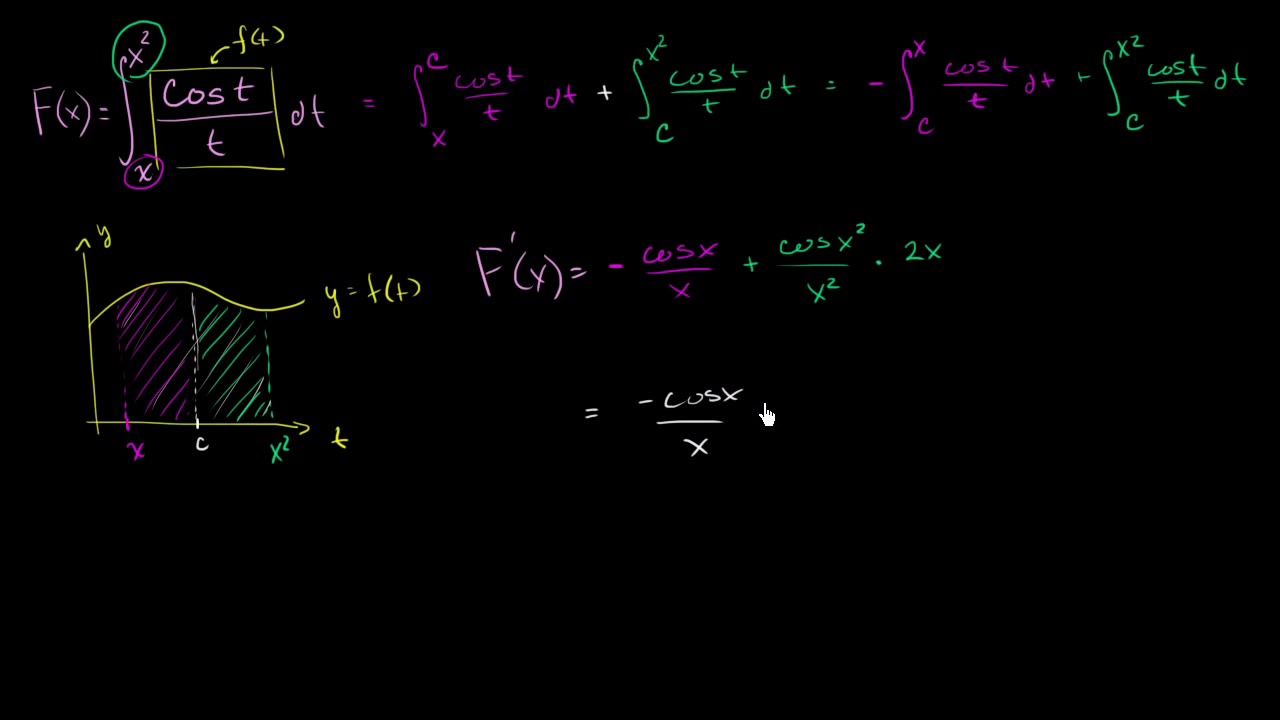 f(t)
F(x) = ∫_x^{x²} cos t / t dt = ∫_x^c cos t / t dt + ∫_c^{x²} cos t / t dt = - ∫_c^x cos t / t dt + ∫_c^{x²} cos t / t dt
y
y = f(t)
x c x² t
F'(x) = - cos x / x + cos x² / x² · 2x
= - cos x / x